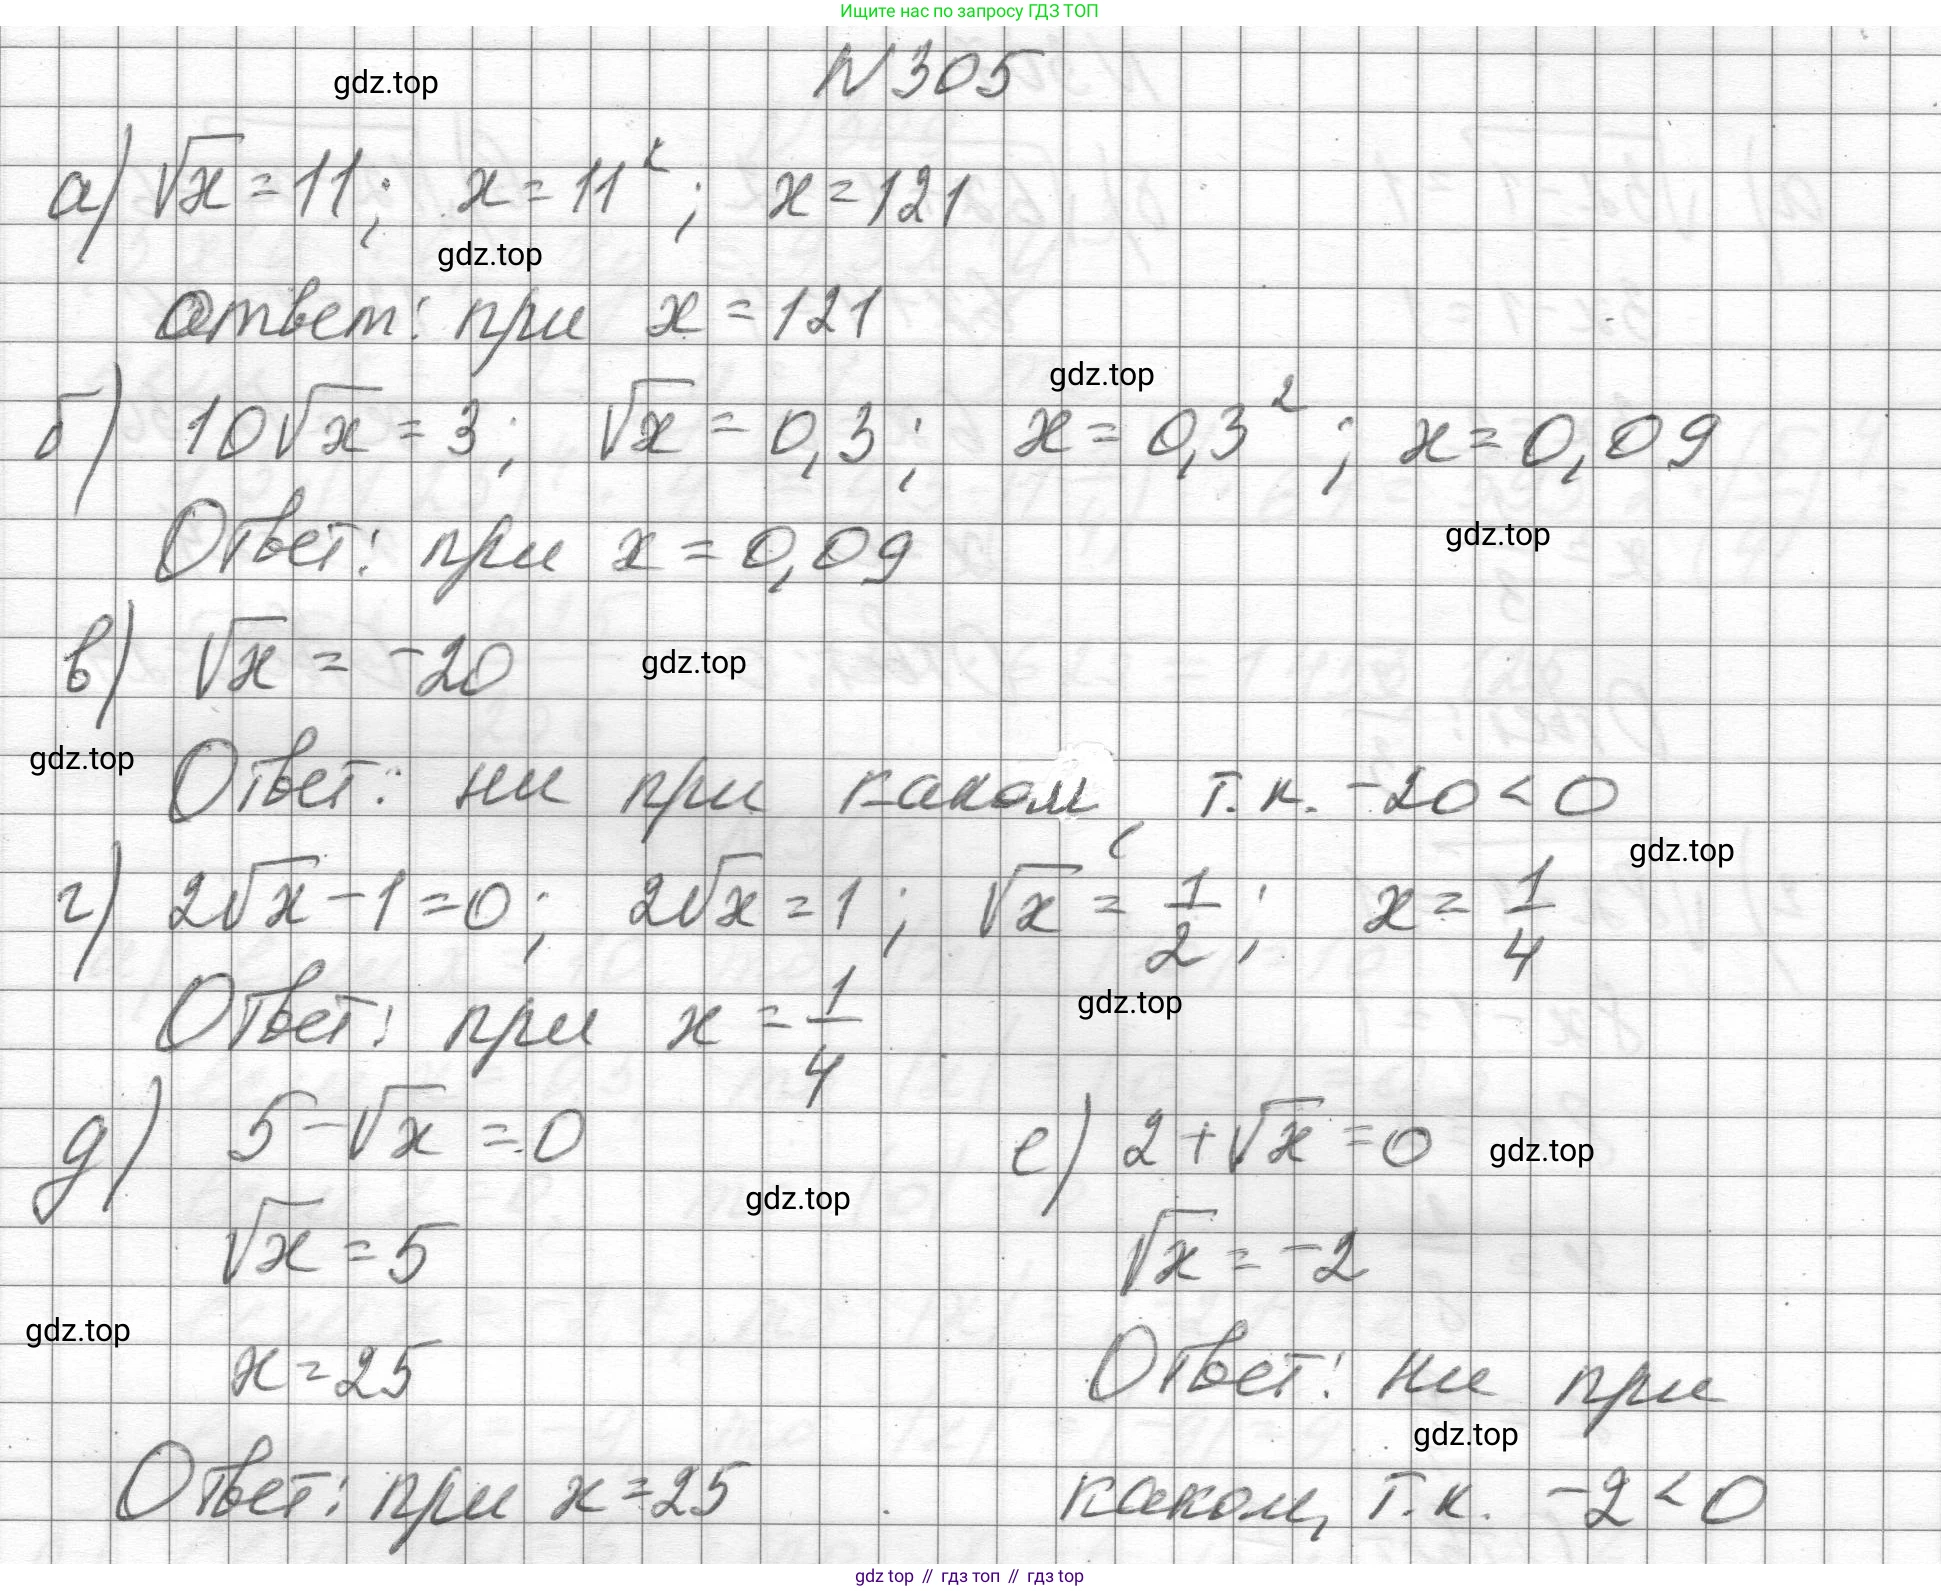 Ищите нас по запросу ГДЗ ТОП
N 305
gdz.top
а) √x = 11; x = 11²; x = 121
gdz.top
Ответ: при x = 121
gdz.top
б) 10√x = 3; √x = 0,3; x = 0,3²; x = 0,09
Ответ: при x = 0,09
gdz.top
в) √x = -20
gdz.top
gdz.top
Ответ: ни при каком, т.к. -20 < 0
gdz.top
г) 2√x - 1 = 0; 2√x = 1; √x = 1/2; x = 1/4
gdz.top
Ответ: при x = 1/4
д) 5 - √x = 0
√x = 5
x = 25
Ответ: при x = 25
gdz.top
gdz.top
е) 2 + √x = 0
gdz.top
√x = -2
Ответ: ни при
gdz.top
каком, т.к. -2 < 0
gdz top // гдз топ // гдз top